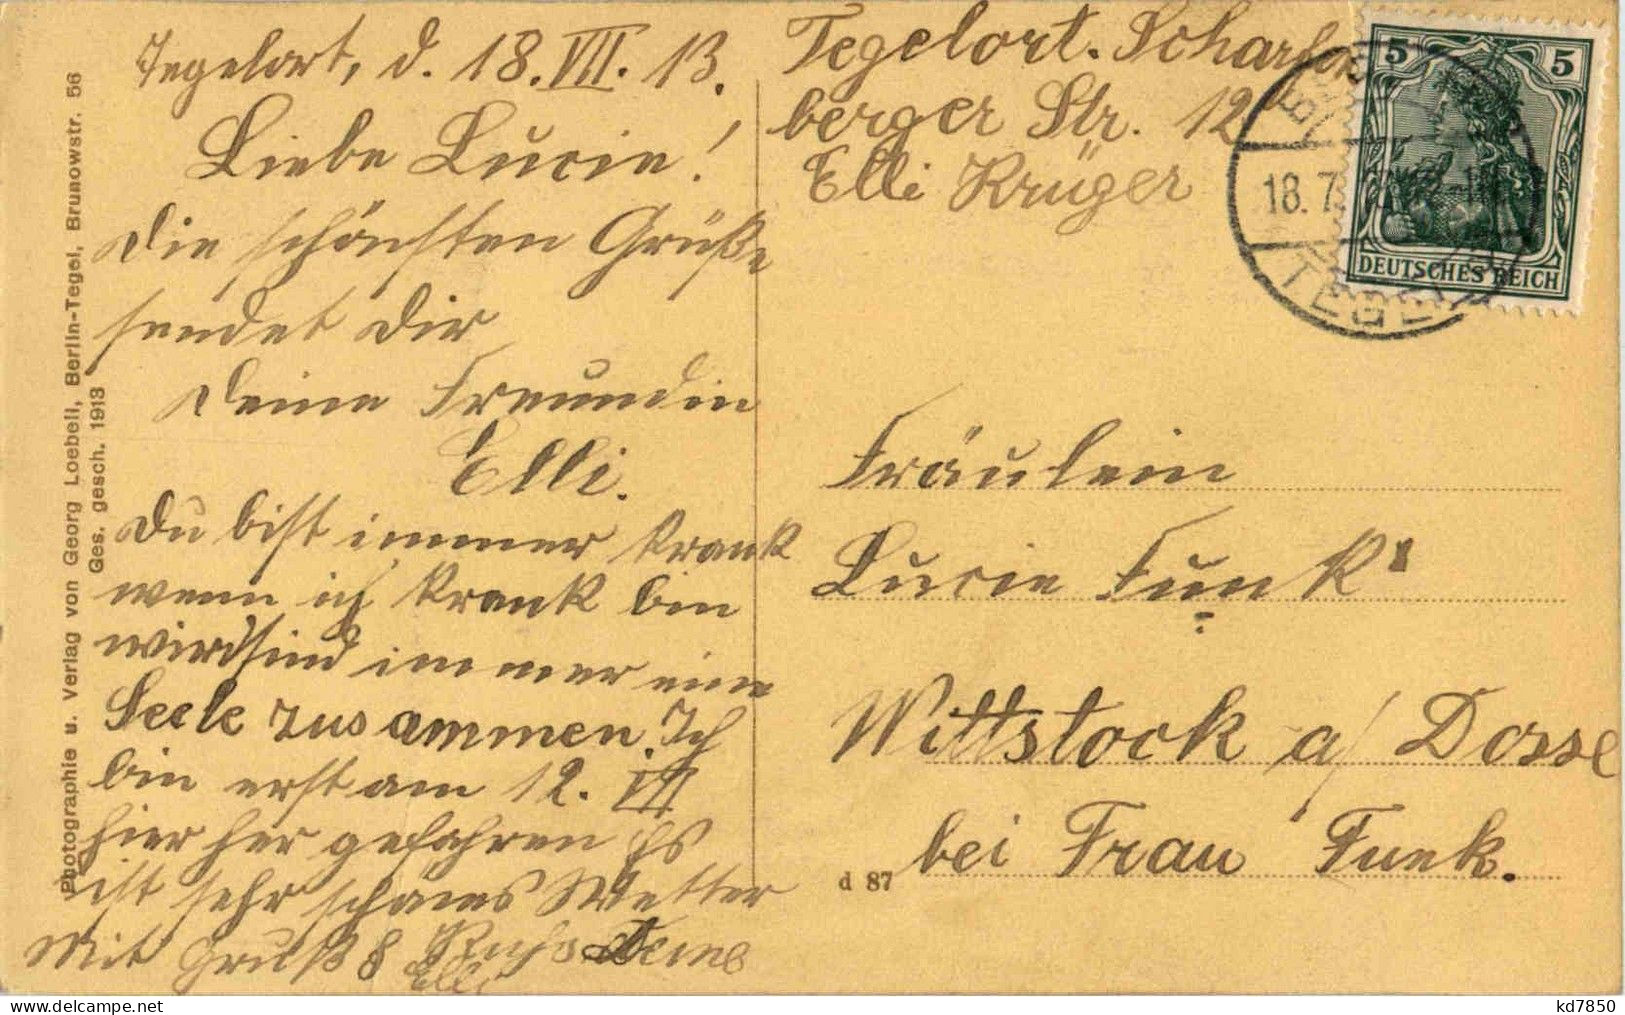 Tegelort, d. 18. VII. 13.
Liebe Lucie!
Die schönsten Grüße
sendet Dir
Deine Freundin
Elli.
Du bist immer krank
wenn ich krank bin
wir sind immer eine
Seele zusammen. Ich
bin erst am 12. VII
hier her gefahren Es
ist sehr schönes Wetter
Mit Gruß & Kuß Deine
Elli
Photographie u. Verlag von Georg Loebell, Berlin-Tegel, Brunowstr. 56
Ges. gesch. 1913
Tegelort. Scharfen
berger Str. 12
Elli Krüger
5 5
DEUTSCHES REICH
18.7.
TEGEL
Fräulein
Lucie Funk
Wittstock a/ Dosse
bei Frau Funk.
d 87
kd7850